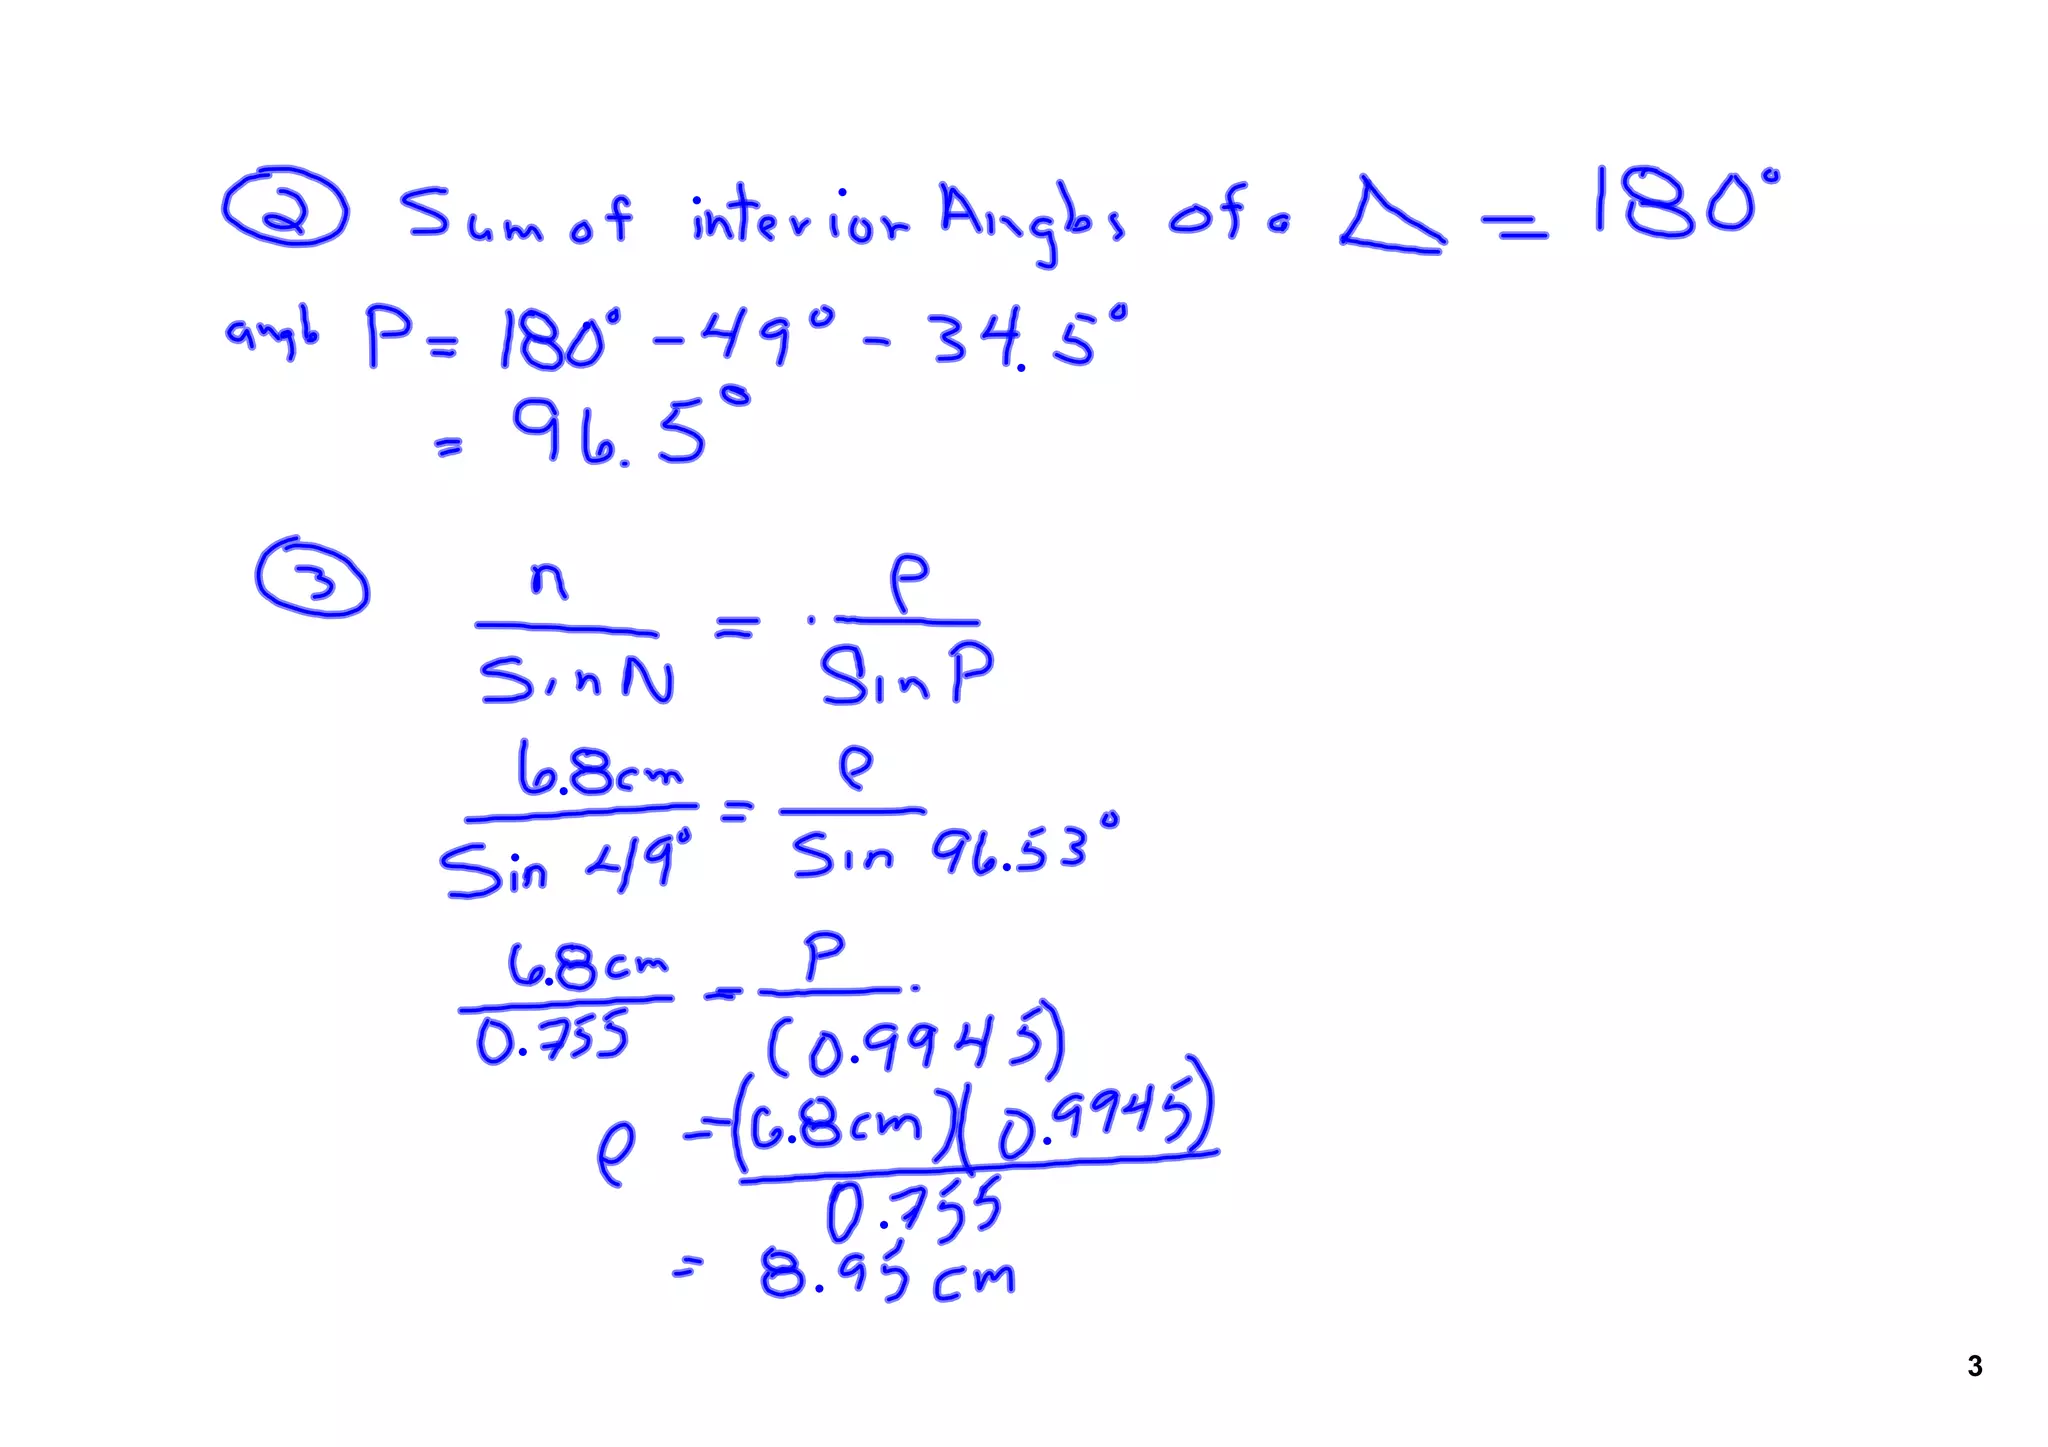 ② Sum of interior Angles of a △ = 180°
angle P = 180° - 49° - 34.5°
= 96.5°
③ n / Sin N = p / Sin P
6.8cm / Sin 49° = p / Sin 96.53°
6.8cm / 0.755 = P / (0.9945)
p = (6.8cm)(0.9945) / 0.755
= 8.95 cm
3